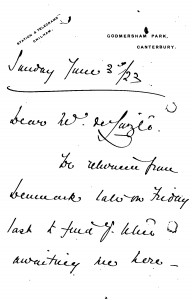 STATION & TELEGRAMS
CHILHAM.
GODMERSHAM PARK,
CANTERBURY.
Sunday June 3rd/23.
Dear Mr. de László.
We returned from
Denmark late on Friday
last to find yr. letter
awaiting me here –